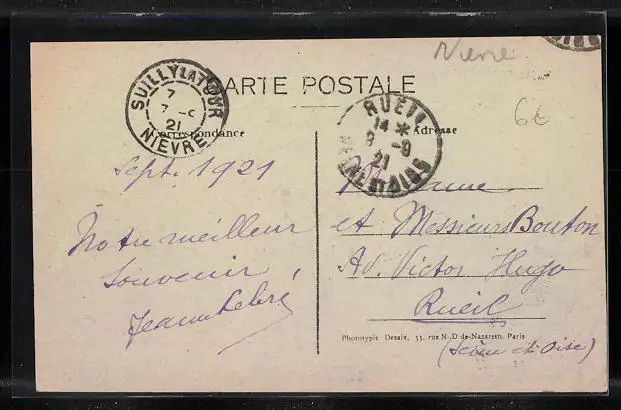 Nievre
CARTE POSTALE
SUILLY LA TOUR
7
21
NIEVRE
RUEIL
14 *
8 -9
21
SEINE ET OISE
6€
Correspondance
Adresse
Sept. 1921
Notre meilleur
souvenir
Madame
et Messieurs Bouton
Av. Victor Hugo
Rueil
(Seine et Oise)
Phototypie Desaix, 53, rue N.-D de-Nazareth. Paris